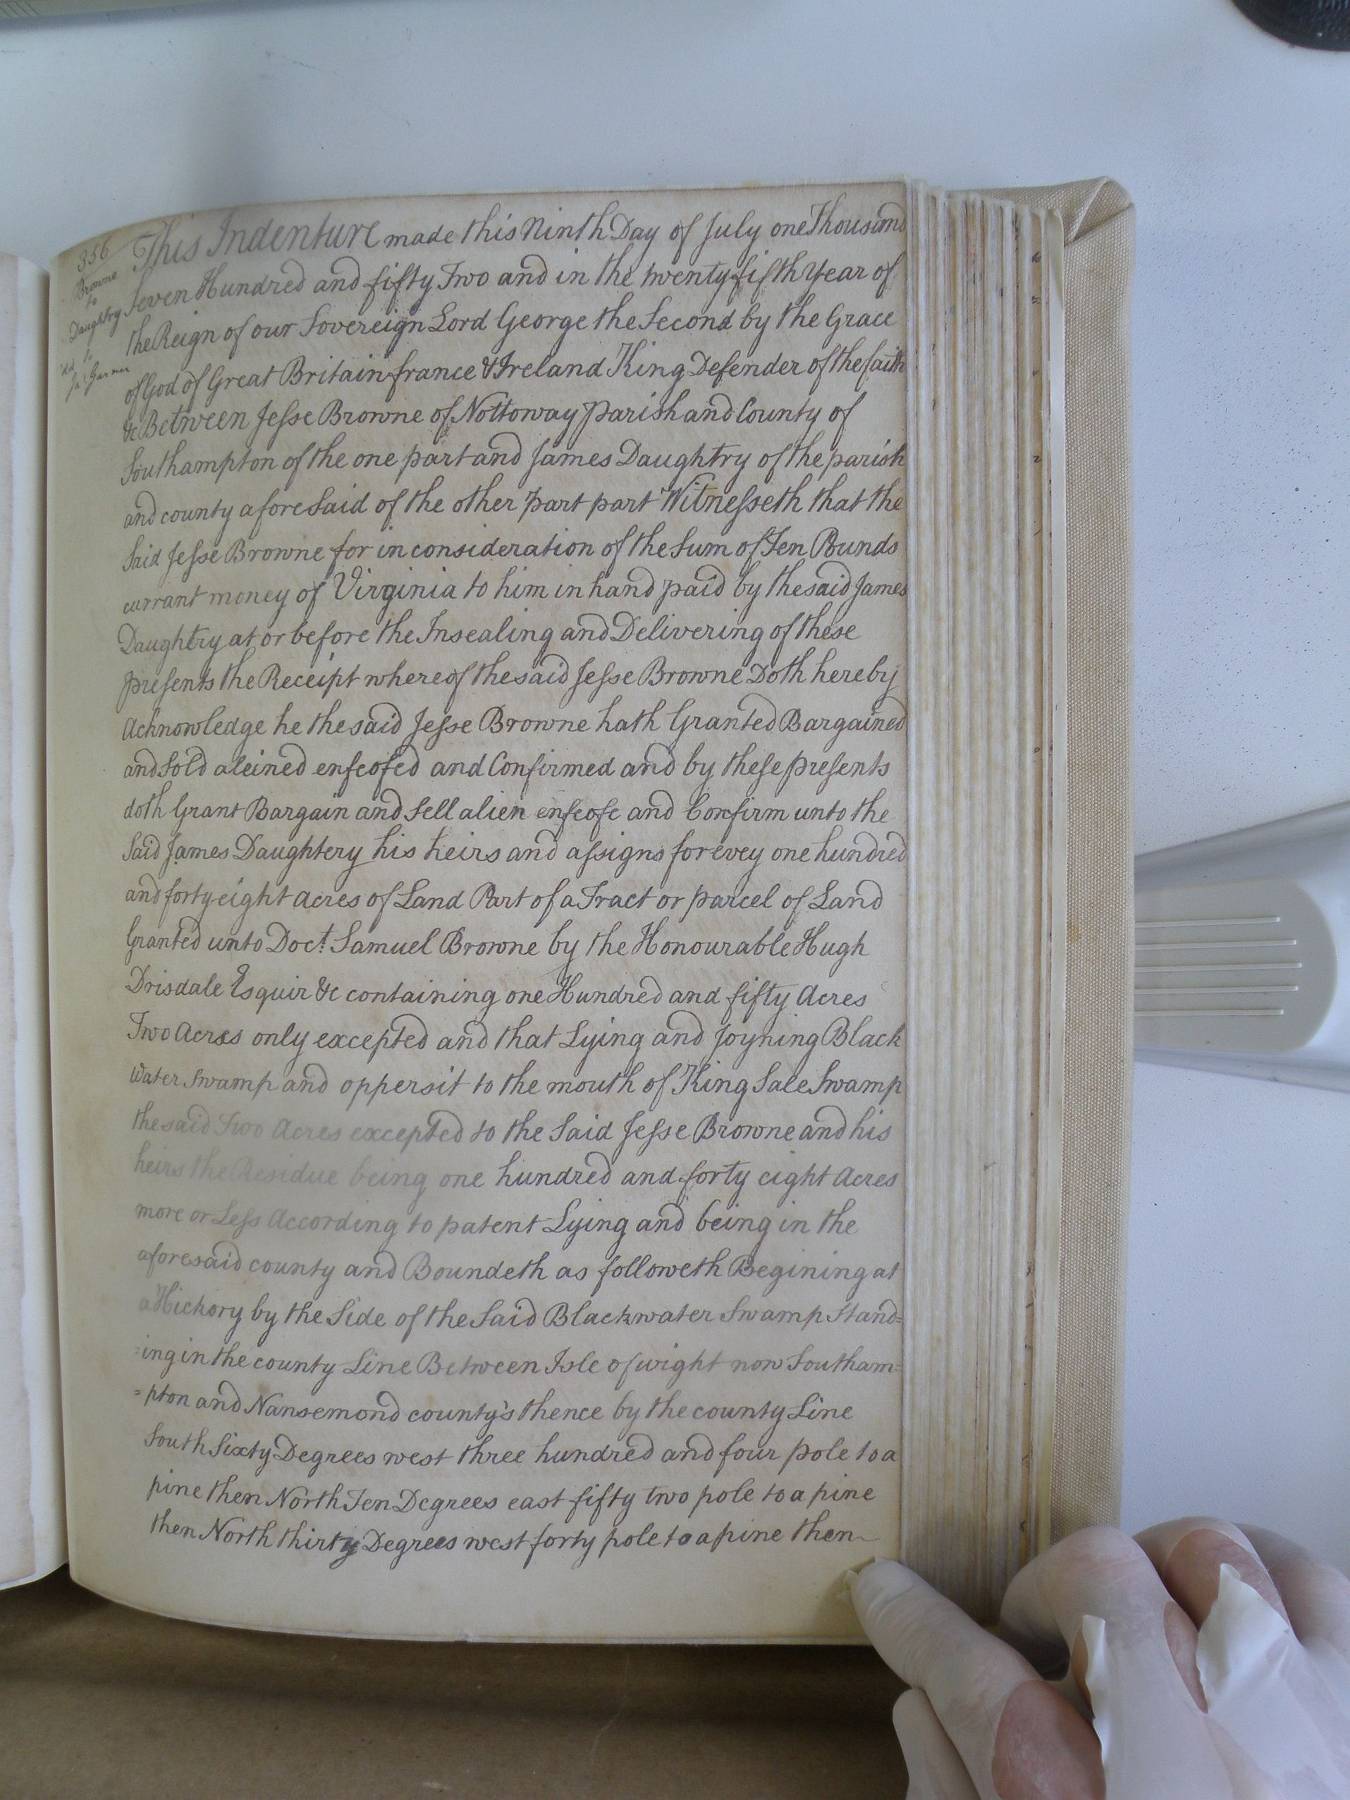 356
Browne
to
Daughtry
to
This Indenture made this Ninth Day of July one Thousand
Seven Hundred and fifty Two and in the twenty fifth Year of
the Reign of our Sovereign Lord George the Second by the Grace
of God of Great Britain france & Ireland King Defender of the faith
&c Between Jesse Browne of Nottoway parish and County of
Southampton of the one part and James Daughtry of the parish
and county aforesaid of the other part part Witnesseth that the
Said Jesse Browne for in consideration of the Sum of Ten Pounds
currant money of Virginia to him in hand paid by the said James
Daughtry at or before the Insealing and Delivering of these
presents the Receipt whereof the said Jesse Browne Doth hereby
Acknowledge he the said Jesse Browne hath Granted Bargained
and Sold aleined enfeofed and Confirmed and by these presents
doth Grant Bargain and Sell alien enfeofe and Confirm unto the
Said James Daughtery his heirs and assigns forevey one hundred
and forty eight acres of Land Part of a Tract or parcel of Land
Granted unto Doct. Samuel Browne by the Honourable Hugh
Drisdale Esquir &c containing one Hundred and fifty Acres
Two Acres only excepted and that Lying and Joyning Black
Water Swamp and oppersit to the mouth of King Sale Swamp
the said Two Acres excepted to the Said Jesse Browne and his
heirs the Residue being one hundred and forty eight Acres
more or Less According to patent Lying and being in the
aforesaid county and Boundeth as followeth Begining at
a Hickory by the Side of the Said Blackwater Swamp Stand=
=ing in the county Line Between Isle of wight now Southam=
=pton and Nansemond county's thence by the county Line
South Sixty Degrees west three hundred and four pole to a
pine then North Ten Degrees east fifty two pole to a pine
then North thirty Degrees west forty pole to a pine then